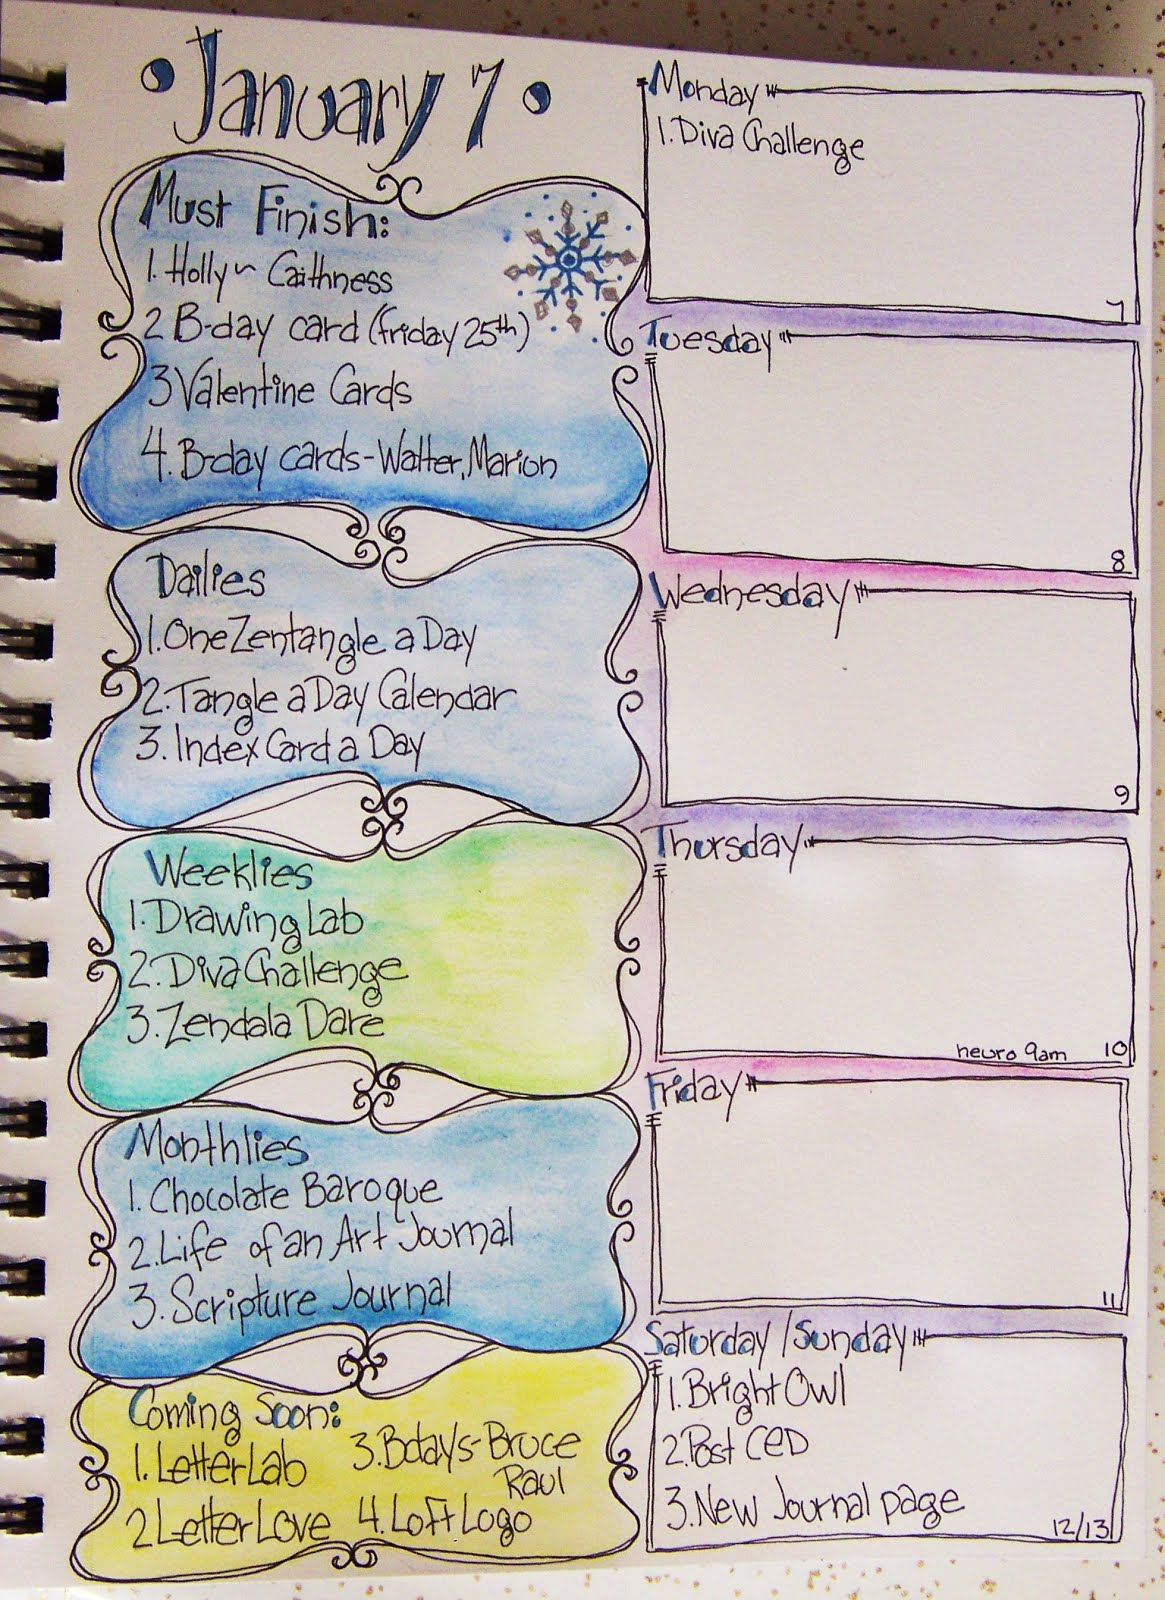 January 7
Must Finish:
1. Holly ~ Caithness
2 B-day card (friday 25th)
3 Valentine Cards
4. B-day cards - Walter, Marion
Dailies
1. One Zentangle a Day
2. Tangle a Day Calendar
3. Index Card a Day
Weeklies
1. Drawing Lab
2. Diva Challenge
3. Zendala Dare
Monthlies
1. Chocolate Baroque
2. Life of an Art Journal
3. Scripture Journal
Coming Soon:
1. Letter Lab
2 Letter Love
3. Bdays - Bruce
Raul
4. Loft Logo
Monday
1. Diva Challenge
7
Tuesday
8
Wednesday
9
Thursday
neuro 9am 10
Friday
11
Saturday / Sunday
1. Bright Owl
2. Post CED
3. New Journal page
12/13